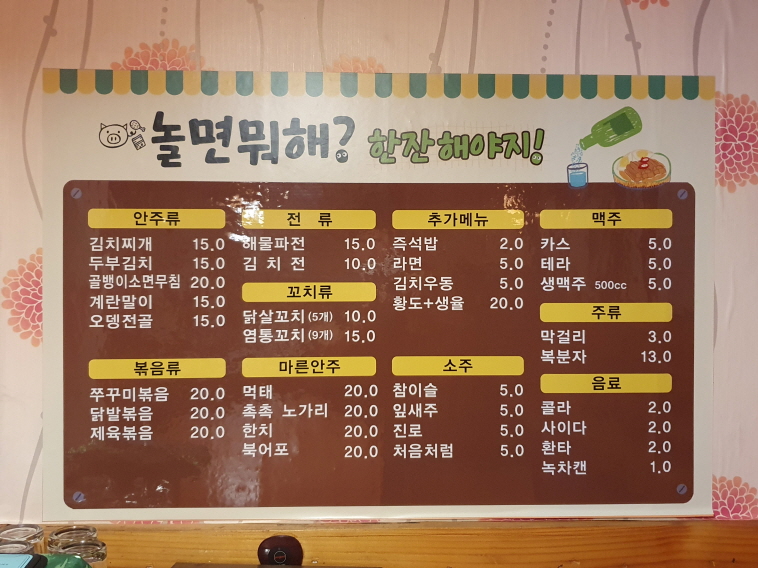 놀면뭐해? 한잔해야지!
안주류
김치찌개 15.0
두부김치 15.0
골뱅이소면무침 20.0
계란말이 15.0
오뎅전골 15.0
볶음류
쭈꾸미볶음 20.0
닭발볶음 20.0
제육볶음 20.0
전 류
해물파전 15.0
김 치 전 10.0
꼬치류
닭살꼬치 (5개) 10.0
염통꼬치 (9개) 15.0
마른안주
먹태 20.0
촉촉 노가리 20.0
한치 20.0
북어포 20.0
추가메뉴
즉석밥 2.0
라면 5.0
김치우동 5.0
황도+생율 20.0
소주
참이슬 5.0
잎새주 5.0
진로 5.0
처음처럼 5.0
맥주
카스 5.0
테라 5.0
생맥주 500cc 5.0
주류
막걸리 3.0
복분자 13.0
음료
콜라 2.0
사이다 2.0
환타 2.0
녹차캔 1.0